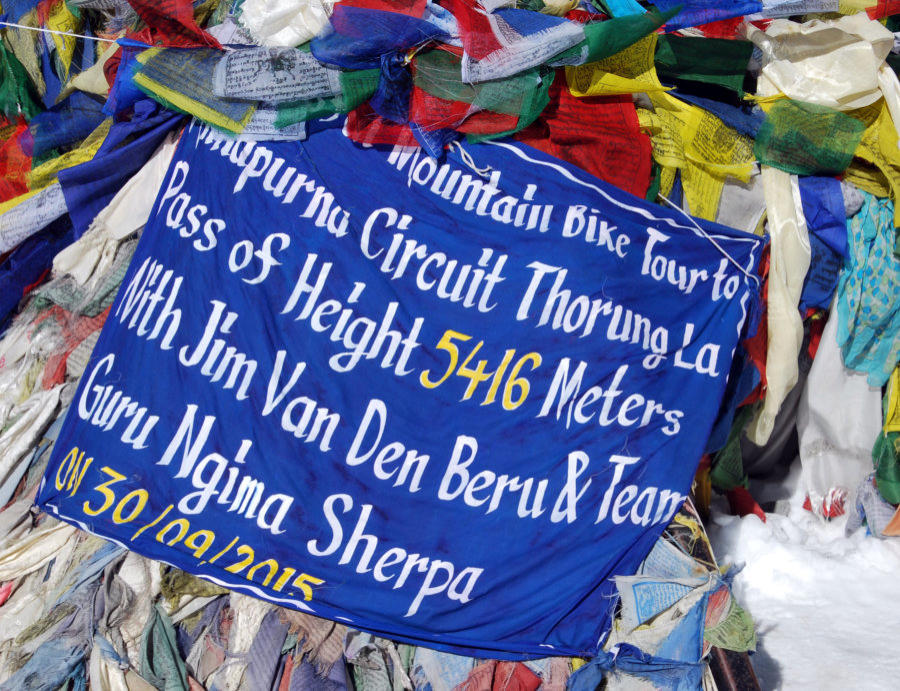 Mountain Bike Tour to
napurna Circuit Thorung La
Pass of Height 5416 Meters
With Jim Van Den Beru & Team
Guru Ngima Sherpa
ON 30/09/2015